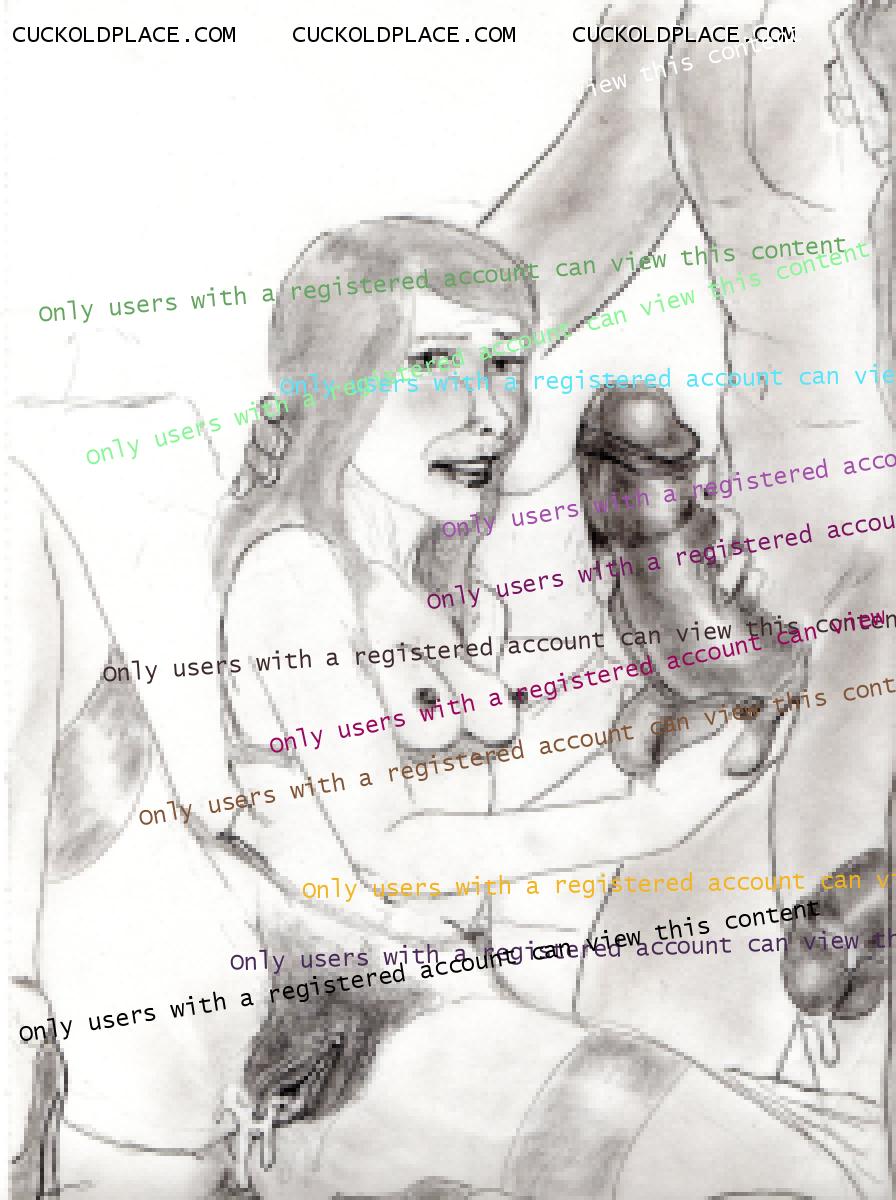 CUCKOLDPLACE.COM CUCKOLDPLACE.COM CUCKOLDPLACE.COM
iew this content
Only users with a registered account can view this content
Only users with a registered account can view this content
Only users with a registered account can vie
Only users with a registered acco
Only users with a registered accou
Only users with a registered account can view this conten
Only users with a registered account can view
Only users with a registered account can view this cont
Only users with a registered account can v
Only users with a registered account can view th
Only users with a registered account can view this content